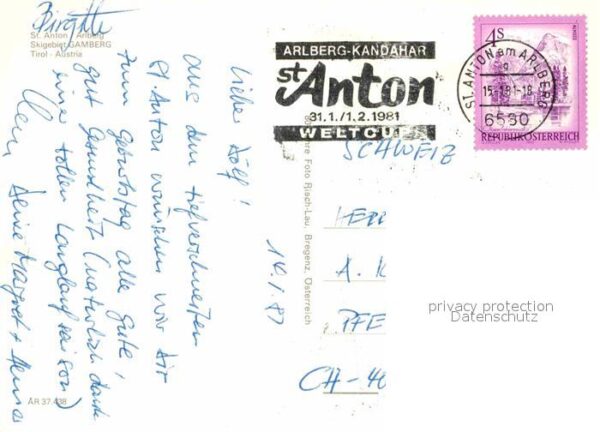 Birgitte
St. Anton · Arlberg
Skigebiet GAMBERG
Tirol - Austria
Liebe Rolf!
aus dem tiefverschneiten
St. Anton wünschen wir dir
zum Geburtstag alle Gute!
gut Gesundheit (natürlich dank
eine tollen Langlaufsaison)
Deine Margret +
14.1.81
AR 37.438
Foto Risch-Lau, Bregenz, Österreich
ARLBERG-KANDAHAR
st Anton
31.1./1.2.1981
WELTCUP
ST. ANTON am ARLBERG
15.-1.81-18
6580
4S
REPUBLIK ÖSTERREICH
SCHWEIZ
HERR
A. K
PFE
CH-40
privacy protection
Datenschutz